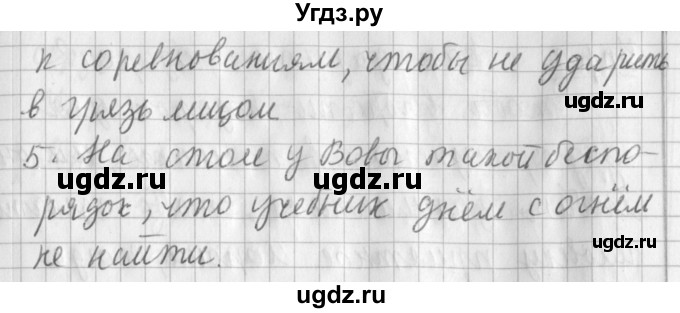 Угдз.ру
к соревнованиям, чтобы не ударить
в грязь лицом
5. На столе у Вовы такой беспо-
ugdz.ru ugdz.ru ugdz.ru
рядок, что учебник днём с огнём
не найти.
ugdz.ru